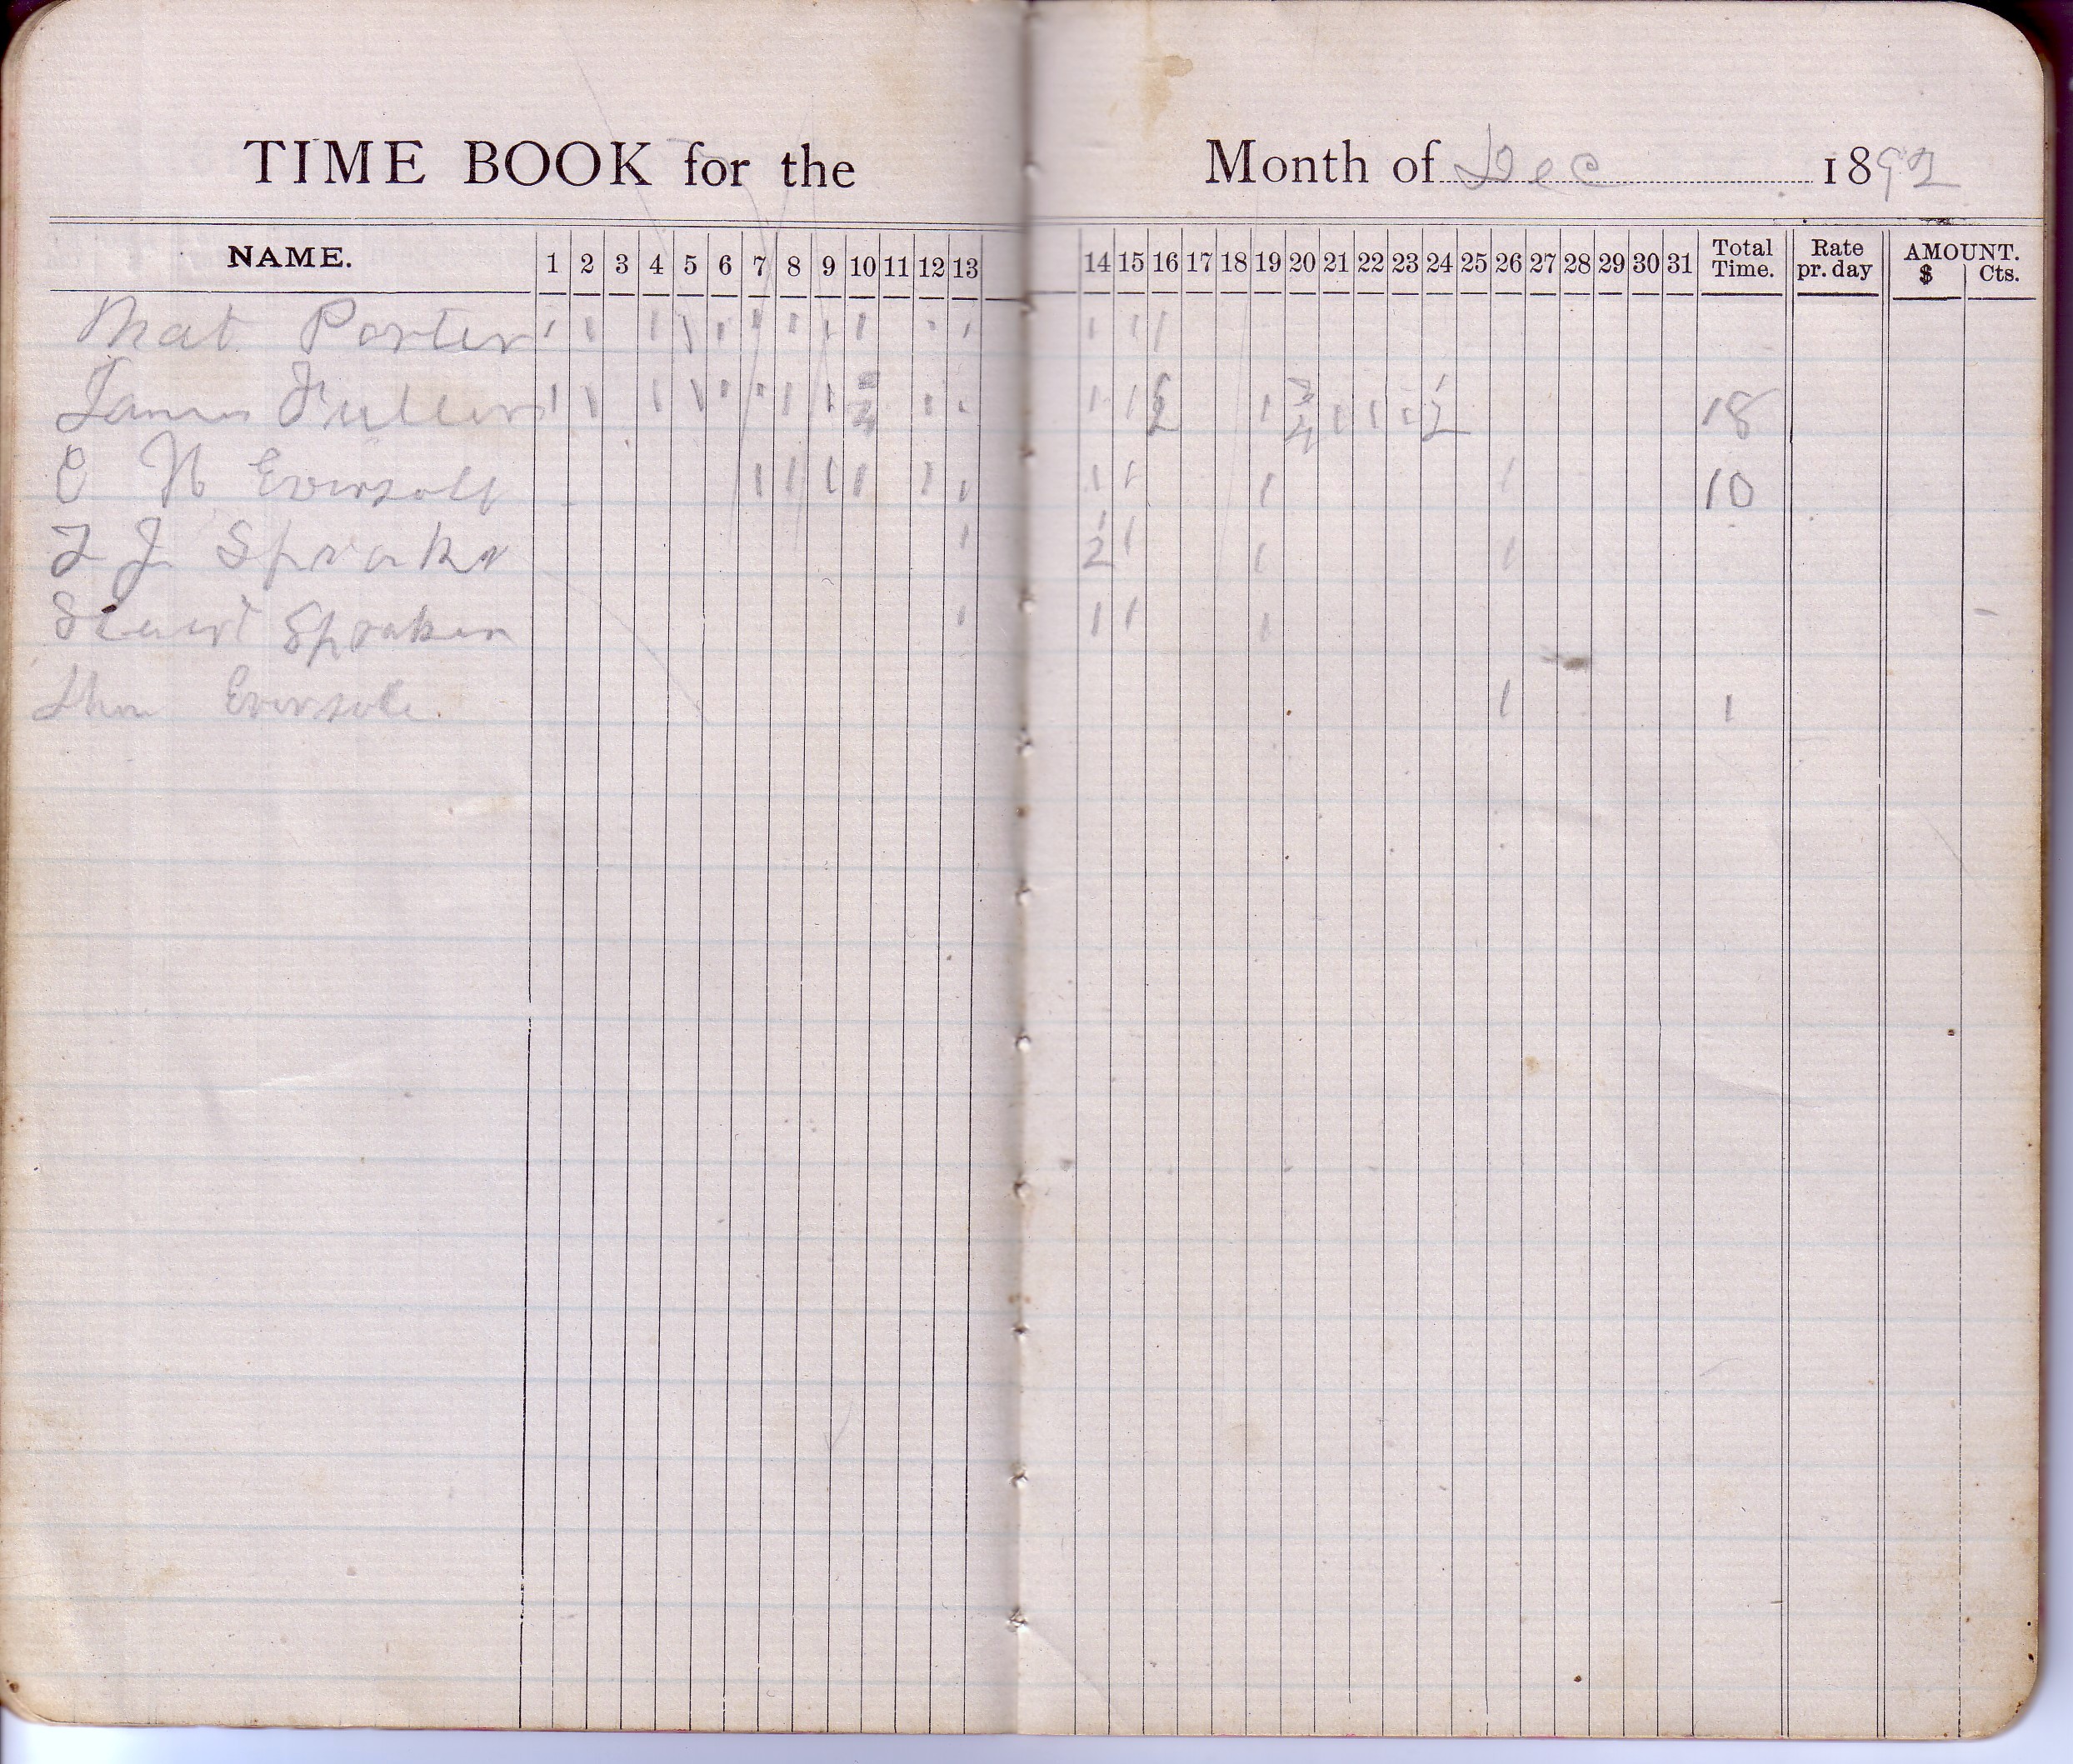 TIME BOOK for the Month of Dec 1892
NAME. 1 2 3 4 5 6 7 8 9 10 11 12 13 14 15 16 17 18 19 20 21 22 23 24 25 26 27 28 29 30 31 Total Time. Rate pr. day AMOUNT. $ Cts.
Mat Porter 1 1 1 1 1 1 1 1 1 1 1 1 1 1
James Fuller 1 1 1 1 1 1 1 1 3/4 1 1 1 1 1/2 1 3/4 1 1 1 1/2 18
C N Eversole 1 1 1 1 1 1 1 1 1 1 10
T J Spraker 1 1/2 1 1 1
Stewart Spraken 1 1 1 1
Eversole 1 1